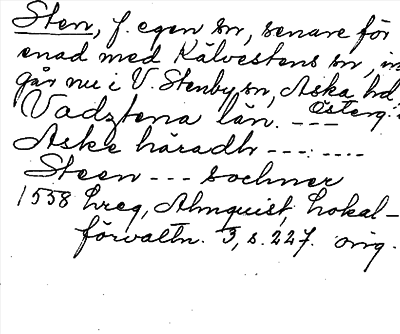 Sten, f. egen sn, senare för
enad med Kälvestens sn, in
går nu i V. Stenby sn, Aska hd
Österg.
Vadztena län. ---
Aske häradh ---:----
Steen --- sochner
1558 hreg, Almquist, Lokal-
förvaltn. 3, s. 227. orig.